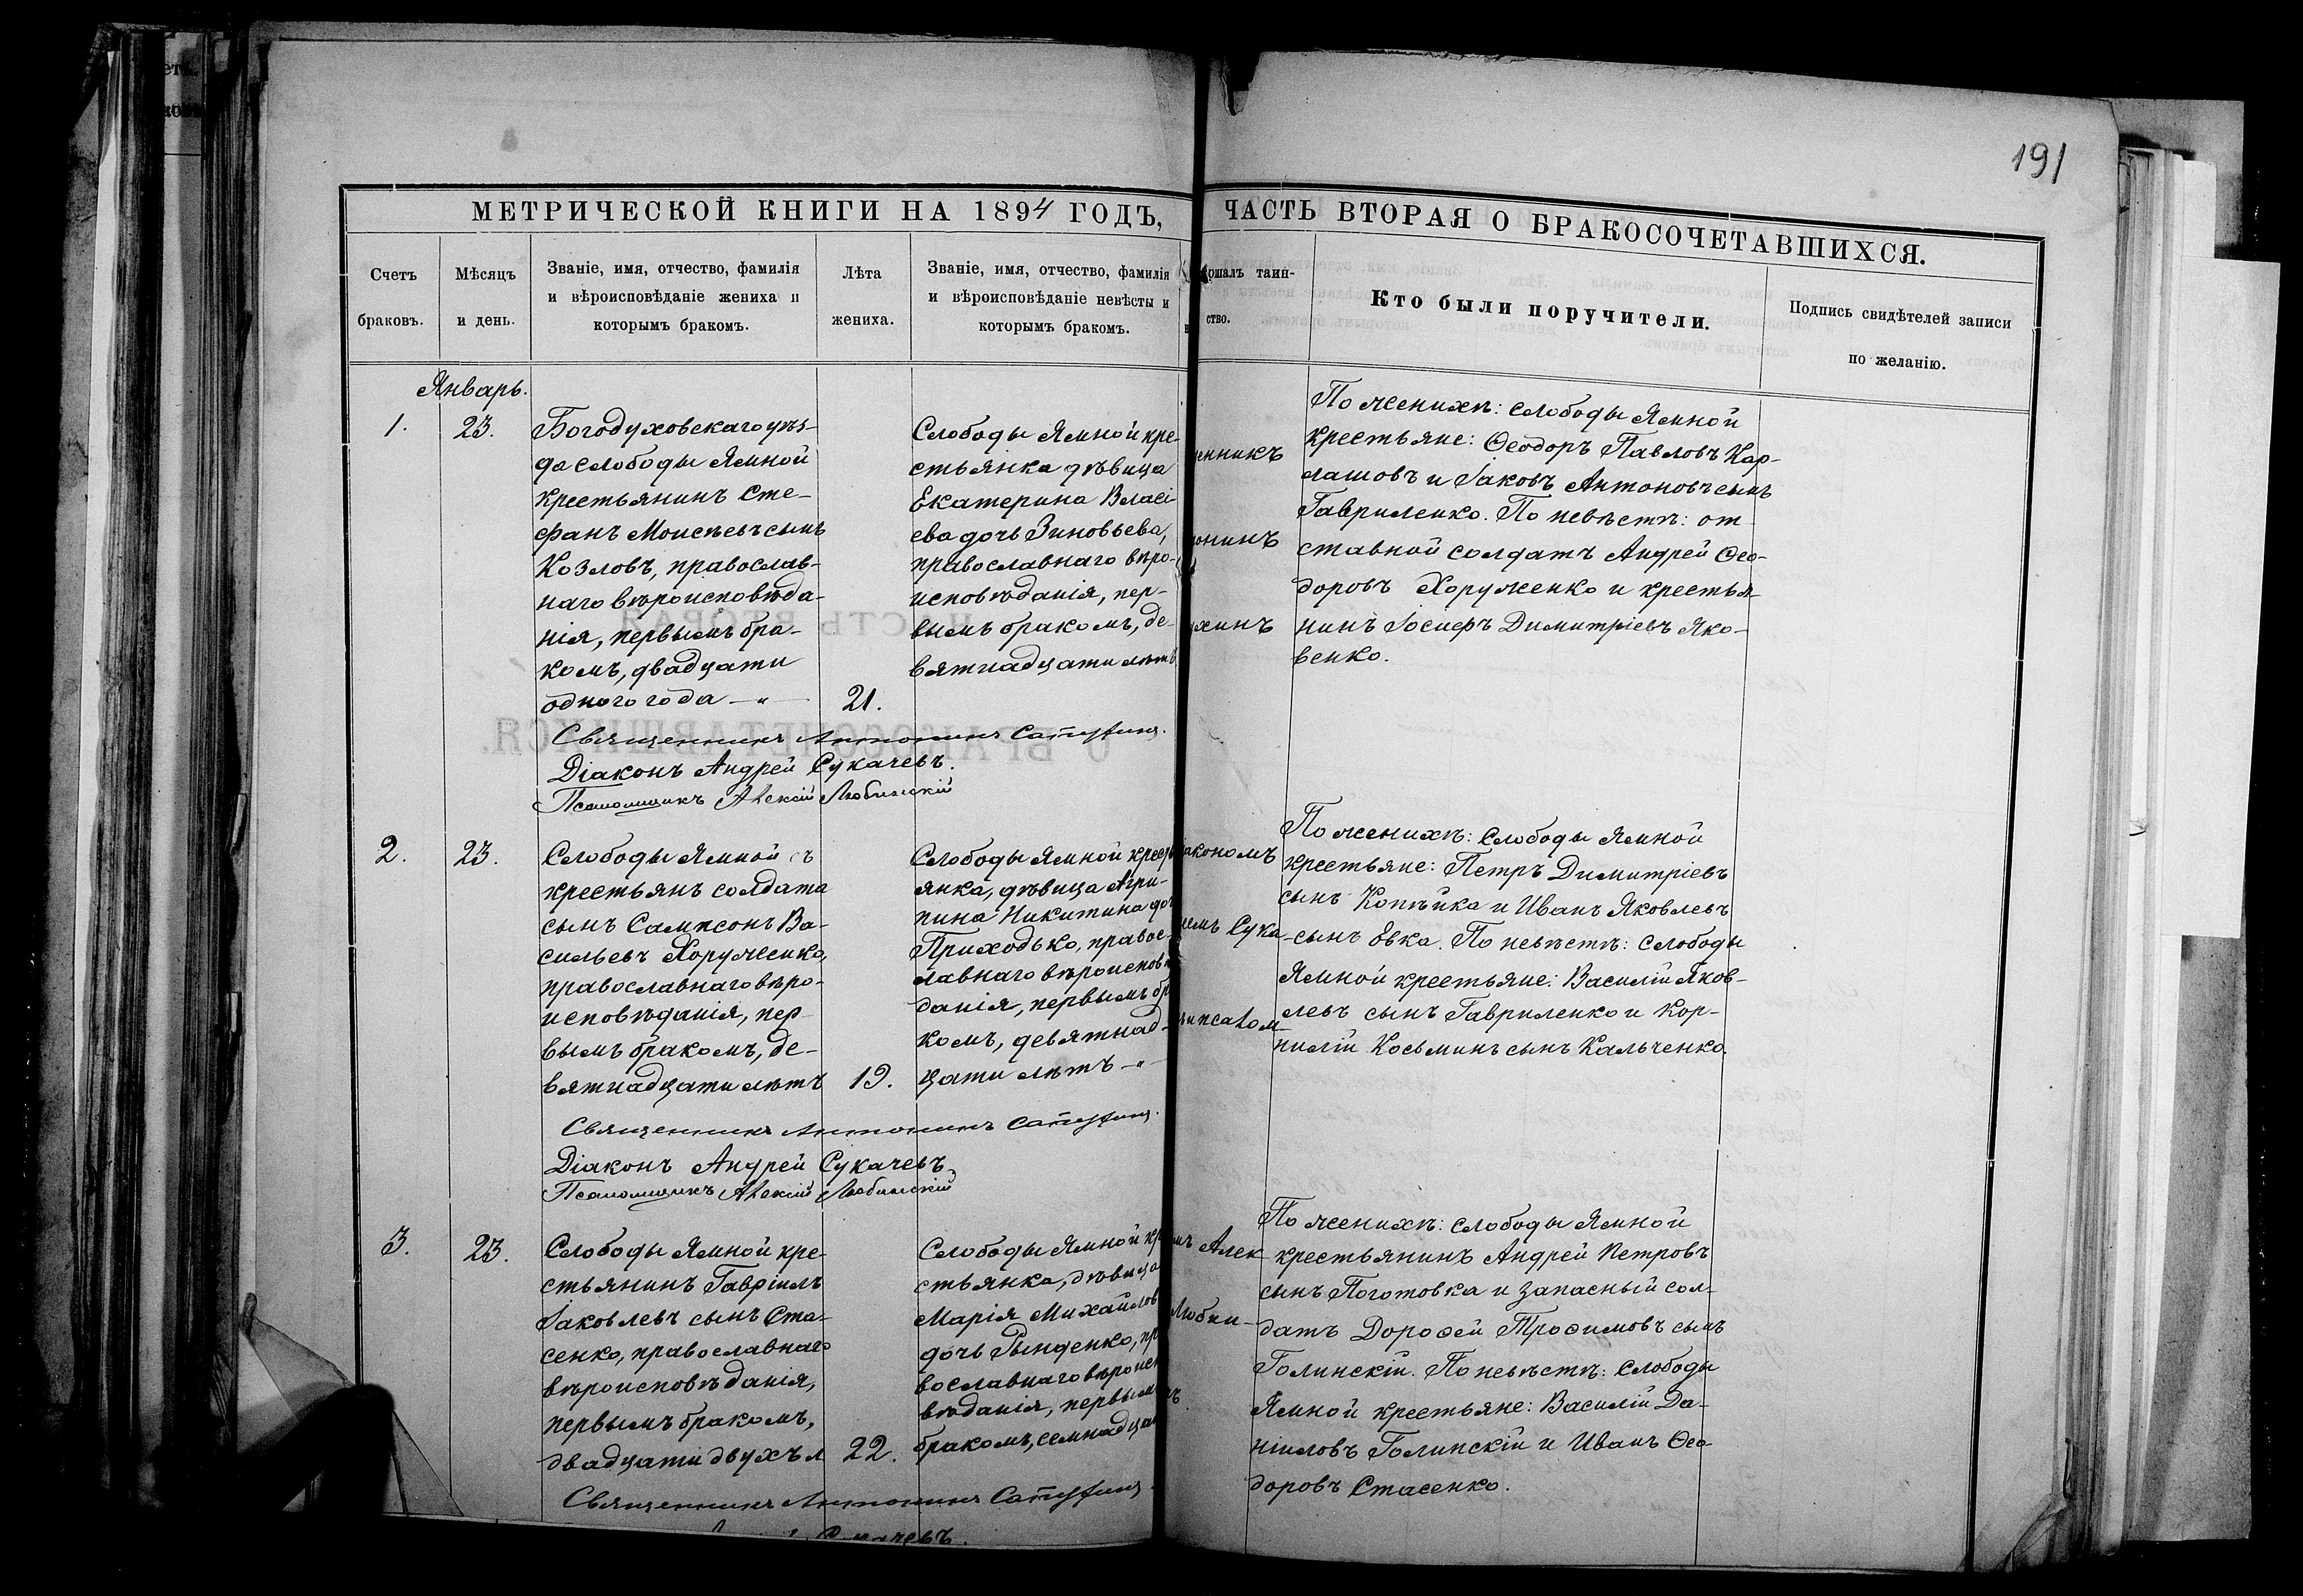 191
МЕТРИЧЕСКОЙ КНИГИ НА 1894 ГОДЪ,
ЧАСТЬ ВТОРАЯ О БРАКОСОЧЕТАВШИХСЯ.
Счетъ
браковъ.
Мѣсяцъ
и день.
Званіе, имя, отчество, фамилія
и вѣроисповѣданіе жениха и
которымъ бракомъ.
Лѣта
жениха.
Званіе, имя, отчество, фамилія
и вѣроисповѣданіе невѣсты и
которымъ бракомъ.
таин-
ство.
Кто были поручители.
Подпись свидѣтелей записи
по желанію.
Январь.
1.
23.
Богодуховскаго уѣз-
да слободы Ямной
крестьянинъ Сте-
фанъ Моисеевъ сынъ
Козловъ, православ-
наго вѣроисповѣда-
нія, первымъ бра-
комъ, двадцати
одного года —„—
21.
Слободы Ямной кре-
стьянка дѣвица
Екатерина Власі-
ева дочь Зиновьева,
православнаго вѣро-
исповѣданія, пер-
вымъ бракомъ, де-
вятнадцати лѣтъ
енникъ
онинъ
ухинъ
По женихѣ: слободы Ямной
крестьяне: Ѳеодоръ Павловъ Кар-
лашовъ и Іаковъ Антоновъ сынъ
Гавриленко. По невѣстѣ: от-
ставной солдатъ Андрей Ѳео-
доровъ Хоруженко и крестья-
нинъ Іосифъ Димитріевъ Яко-
венко.
Священникъ Антонинъ
Діаконъ Андрей Сукачевъ.
Псаломщикъ Алексій
2.
23.
Слободы Ямной съ
крестьянъ солдата
сынъ Сампсонъ Ва-
сильевъ Хоруженко,
православнаго вѣро-
исповѣданія, пер-
вымъ бракомъ, де-
вятнадцати лѣтъ
19.
Слободы Ямной крестья
янка, дѣвица Агри-
пина Никитина до
Приходько, правос-
лавнаго вѣроисповѣ
данія, первымъ бр
комъ, девятнад-
цати лѣтъ —„—
акономъ
емъ Сука-
и псалом-
По женихѣ: слободы Ямной
крестьяне: Петръ Димитріевъ
сынъ Копѣйка и Иванъ Яковлевъ
сынъ Евка. По невѣстѣ: слободы
Ямной крестьяне: Василій Яков-
левъ сынъ Гавриленко и Кор-
нилій Косьминъ сынъ Кальченко.
Священникъ Антонинъ
Діаконъ Андрей Сукачевъ
Псаломщикъ Алексій
3.
23.
Слободы Ямной кре-
стьянинъ Гавріилъ
Іаковлевъ сынъ Ста-
сенко, православнаго
вѣроисповѣданія,
первымъ бракомъ,
двадцати двухъ л
22.
Слободы Ямной кр
стьянка, дѣвица
Марія Михайлов
дочь Рынденко, пр
вославнаго вѣроисп
вѣданія, первымъ
бракомъ, семнадца
мъ Алек-
Любин-
По женихѣ: слободы Ямной
крестьянинъ Андрей Петровъ
сынъ Поготовка и запасный сол-
датъ Дороѳей Троѳимовъ сынъ
Голинскій. По невѣстѣ: слободы
Ямной крестьяне: Василій Да-
ніиловъ Голинскій и Иванъ Ѳео-
доровъ Стасенко.
Священникъ Антонинъ